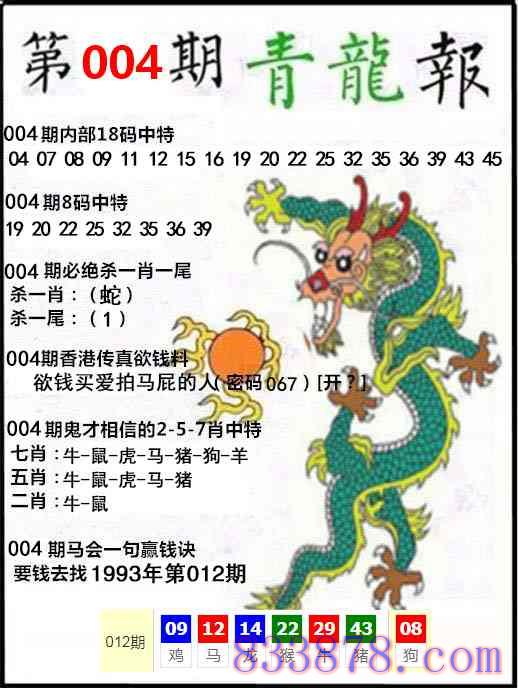 第004期青龍報
004期内部18码中特
04 07 08 09 11 12 15 16 19 20 22 25 32 35 36 39 43 45
004期8码中特
19 20 22 25 32 35 36 39
004 期必绝杀一肖一尾
杀一肖：（蛇）
杀一尾：（1）
004期香港传真欲钱料
欲钱买爱拍马屁的人（密码067）[开？]
004期鬼才相信的2-5-7肖中特
七肖：牛-鼠-虎-马-猪-狗-羊
五肖：牛-鼠-虎-马-猪
二肖：牛-鼠
004 期马会一句赢钱诀
要钱去找1993年第012期
012期 09 12 14 22 29 43 08
鸡 马 龙 猴 牛 猪 狗
833878.com